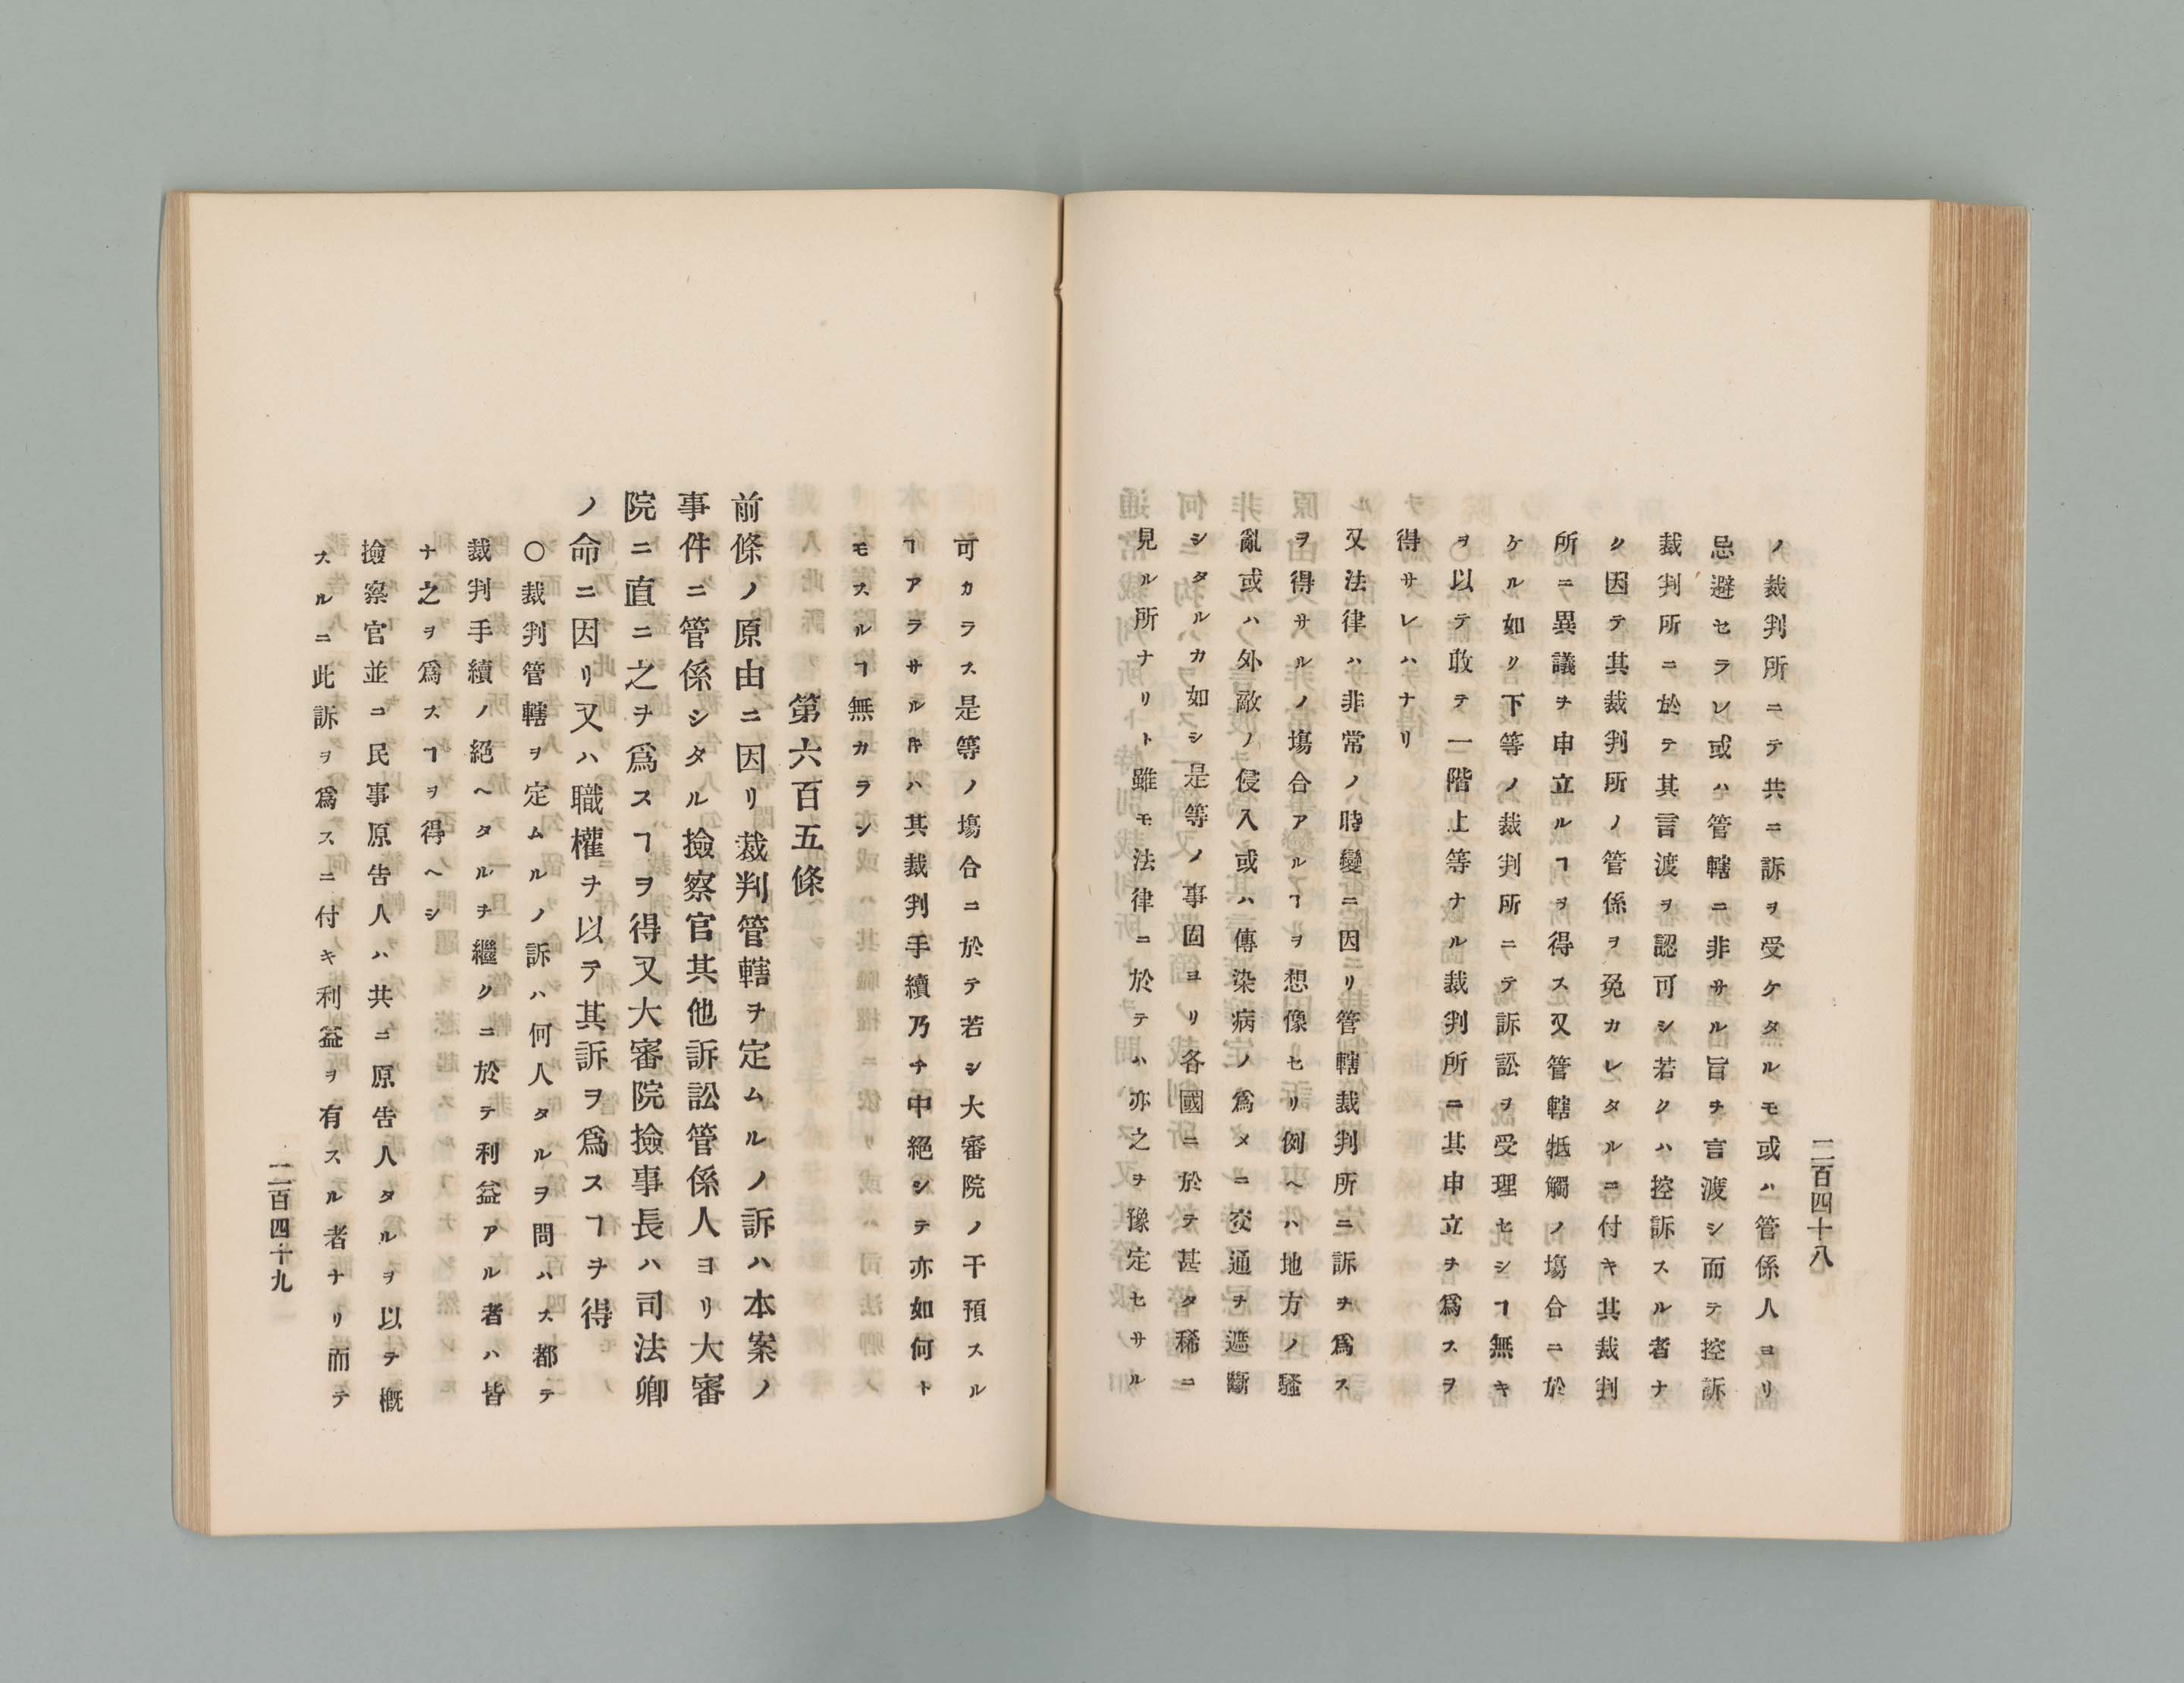 二百四十八
ノ裁判所ニテ共ニ訴ヲ受ケタルモ或ハ管係人ヨリ
忌避セラレ或ハ管轄ニ非サル旨ヲ言渡シ而テ控訴
裁判所ニ於テ其言渡ヲ認可シ若クハ控訴スル者ナ
ク因テ其裁判所ノ管係ヲ免カレタルニ付キ其裁判
所ニ異議ヲ申立ルヿヲ得ス又管轄牴觸ノ塲合ニ於
ケル如ク下等ノ裁判所ニテ訴訟ヲ受理セシヿ無キ
ヲ以テ敢テ一階上等ナル裁判所ニ其申立ヲ爲スヲ
得サレハナリ
又法律ハ非常ノ時變ニ因リ管轄裁判所ニ訴ヲ爲ス
ヲ得サルノ塲合アルヿヲ想像セリ例ヘハ地方ノ騷
亂或ハ外敵ノ侵入或ハ傳染病ノ爲メニ交通ヲ遮斷
シタルカ如シ是等ノ事固ヨリ各國ニ於テ甚タ稀ニ
見ル所ナリト雖モ法律ニ於テハ亦之ヲ豫定セサル
可カラス是等ノ塲合ニ於テ若シ大審院ノ干預スル
ヿアラサルキハ其裁判手續乃チ中絕シテ亦如何ト
モスルヿ無カラン
第六百五條
前條ノ原由ニ因リ裁判管轄ヲ定ムルノ訴ハ本案ノ
事件ニ管係シタル撿察官其他訴訟管係人ヨリ大審
院ニ直ニ之ヲ爲スヿヲ得又大審院撿事長ハ司法卿
ノ命ニ因リ又ハ職權ヲ以テ其訴ヲ爲スヿヲ得
〇裁判管轄ヲ定ムルノ訴ハ何人タルヲ問ハス都テ
裁判手續ノ絕ヘタルヲ繼クニ於テ利益アル者ハ皆
ナ之ヲ爲スヿヲ得ヘシ
撿察官並ニ民事原告人ハ共ニ原告人タルヲ以テ概
スルニ此訴ヲ爲スニ付キ利益ヲ有スル者ナリ而テ
二百四十九